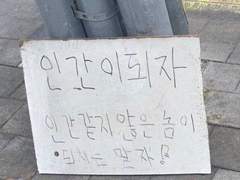 인간이되자
인간같지 않은 놈이
되지는 말자용